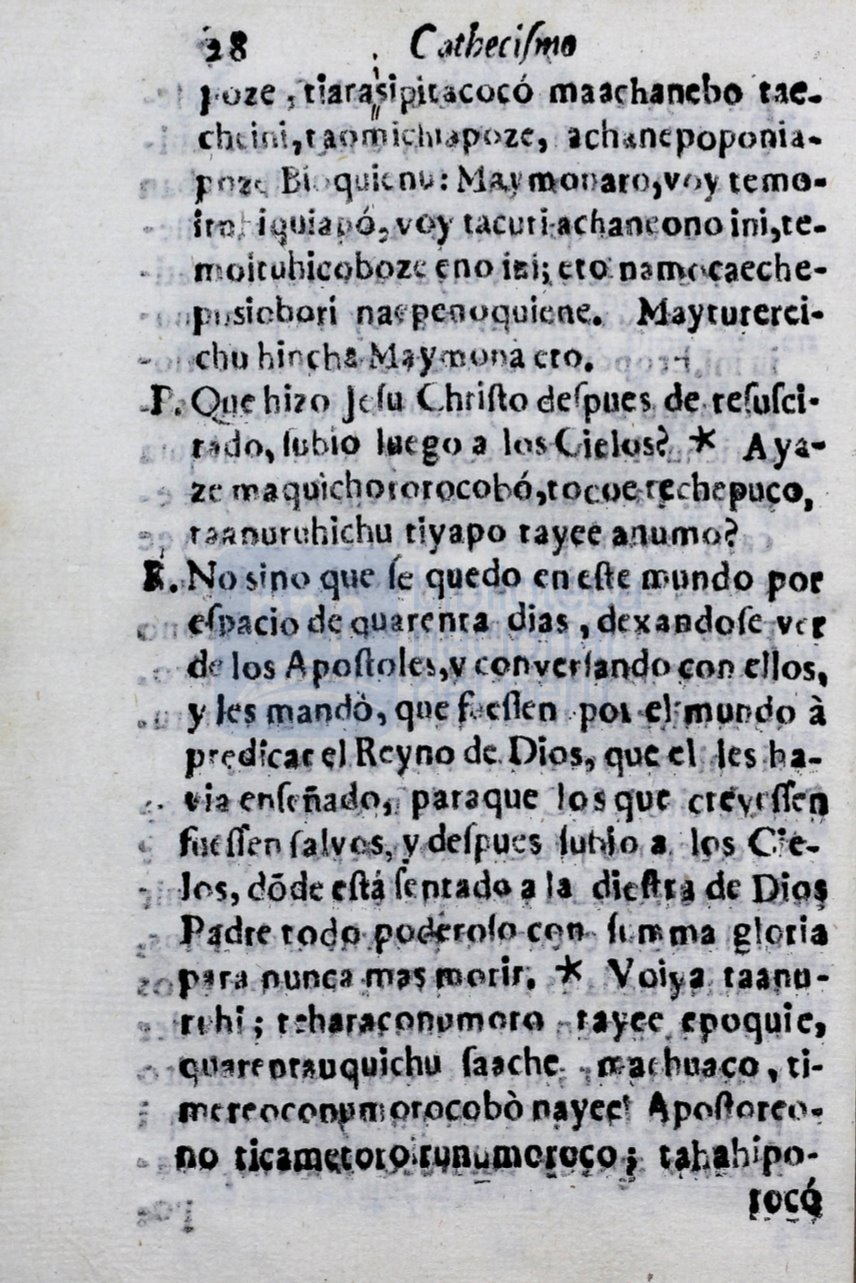 28 Catheciſmo
poze, tiarasipitacocó maachanebo tae-
cheini, taomichiapoze, achanepoponia-
poze Bioquienu: Maymonaro, voy temo-
iquiapó, voy tacuti achaneono ini, te-
moituhicoboze eno ini; eto namocaeche-
pusiobori naepenoquiene. Mayturerci-
chu hincha Maymona eto.
P. Que hizo Jeſu Chriſto deſpues de reſuſci-
tado, ſubio luego a los Cielos? * Aya-
ze maquichotorocobó, tocoe techepuco,
taanuruhichu tiyapo tayee anumo?
R. No sino que ſe quedo en eſte mundo por
eſpacio de quarenta dias, dexandoſe ver
de los Apoſtoles, y converſando con ellos,
y les mandò, que fueſſen por el mundo à
predicar el Reyno de Dios, que el les ha-
via enſeñado, paraque los que creyeſſen
fueſſen ſalvos, y deſpues ſubio a los Cie-
los, dõde eſtá ſentado a la dieſtra de Dios
Padre todo poderoſo con ſumma gloria
para nunca mas morir. * Voiya taanu-
ruhi; teharaconumoro tayee epoquie,
quarentauquichu ſaache machuaco, ti-
mereoconumorocobò nayee Apoſtoreo-
no ticametorotunumoroco; tahahipo-
rocó